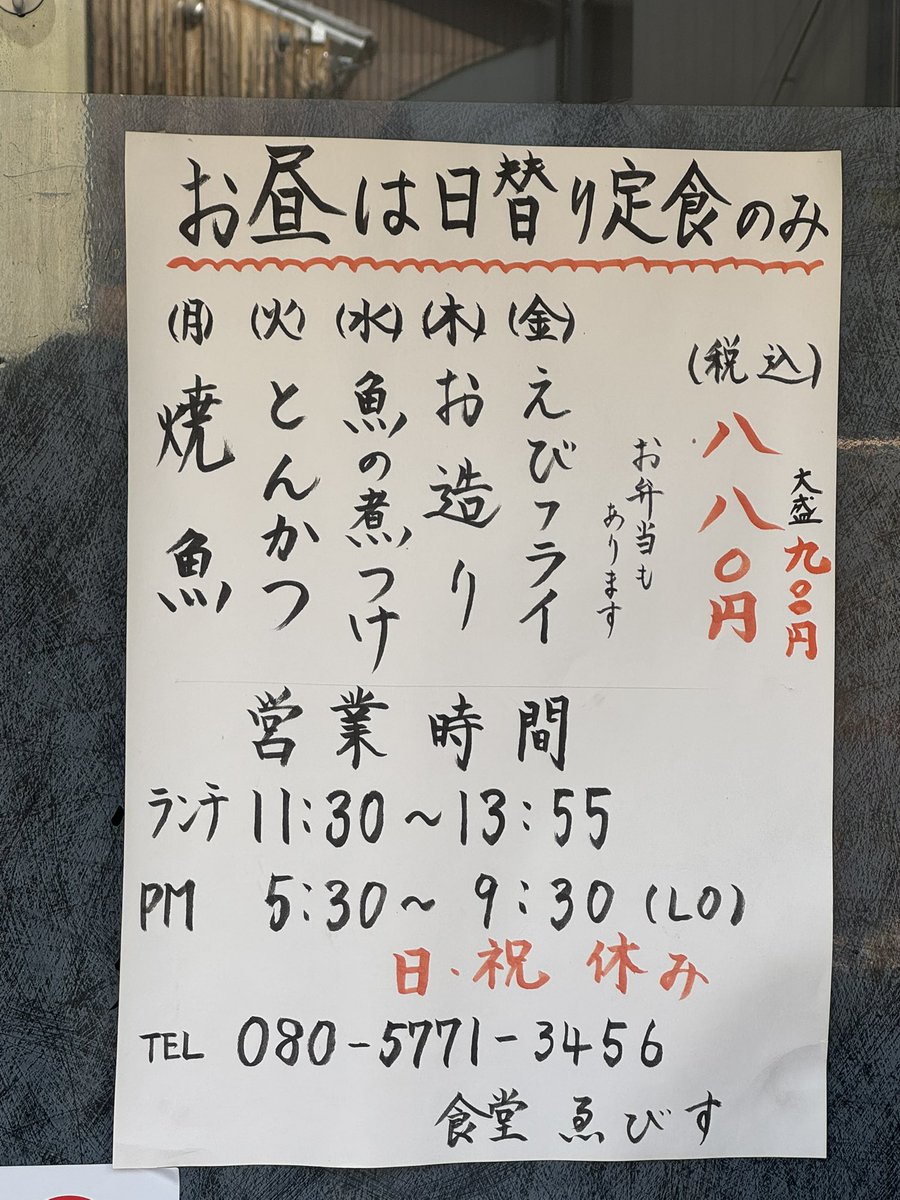 お昼は日替り定食のみ
(月)焼魚
(火)とんかつ
(水)魚の煮つけ
(木)お造り
(金)えびフライ
お弁当も
あります
(税込)
八八〇円
大盛九〇〇円
営業時間
ランチ 11:30～13:55
PM 5:30～9:30(LO)
日・祝 休み
TEL 080-5771-3456
食堂 ゑびす